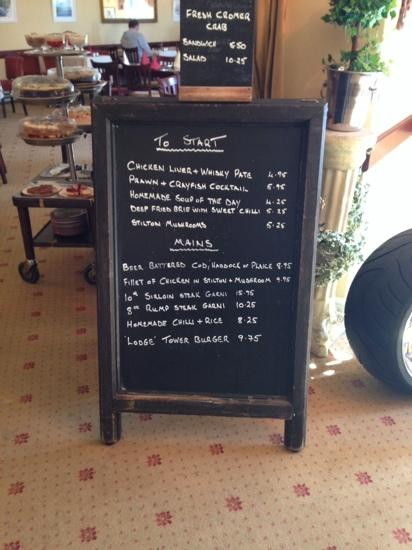 FRESH CROMER
CRAB
SANDWICH 6.50
SALAD 10.25
TO START
CHICKEN LIVER + WHISKY PATE 4.95
PRAWN + CRAYFISH COCKTAIL 5.95
HOMEMADE SOUP OF THE DAY 4.25
DEEP FRIED BRIE WITH SWEET CHILLI 5.25
STILTON MUSHROOMS 5.25
MAINS
BEER BATTERED COD, HADDOCK OR PLAICE 8.95
FILLET OF CHICKEN IN STILTON + MUSHROOM 9.95
10oz SIRLOIN STEAK GARNI 15.95
8oz RUMP STEAK GARNI 10.25
HOMEMADE CHILLI + RICE 8.25
'LODGE' TOWER BURGER 9.75